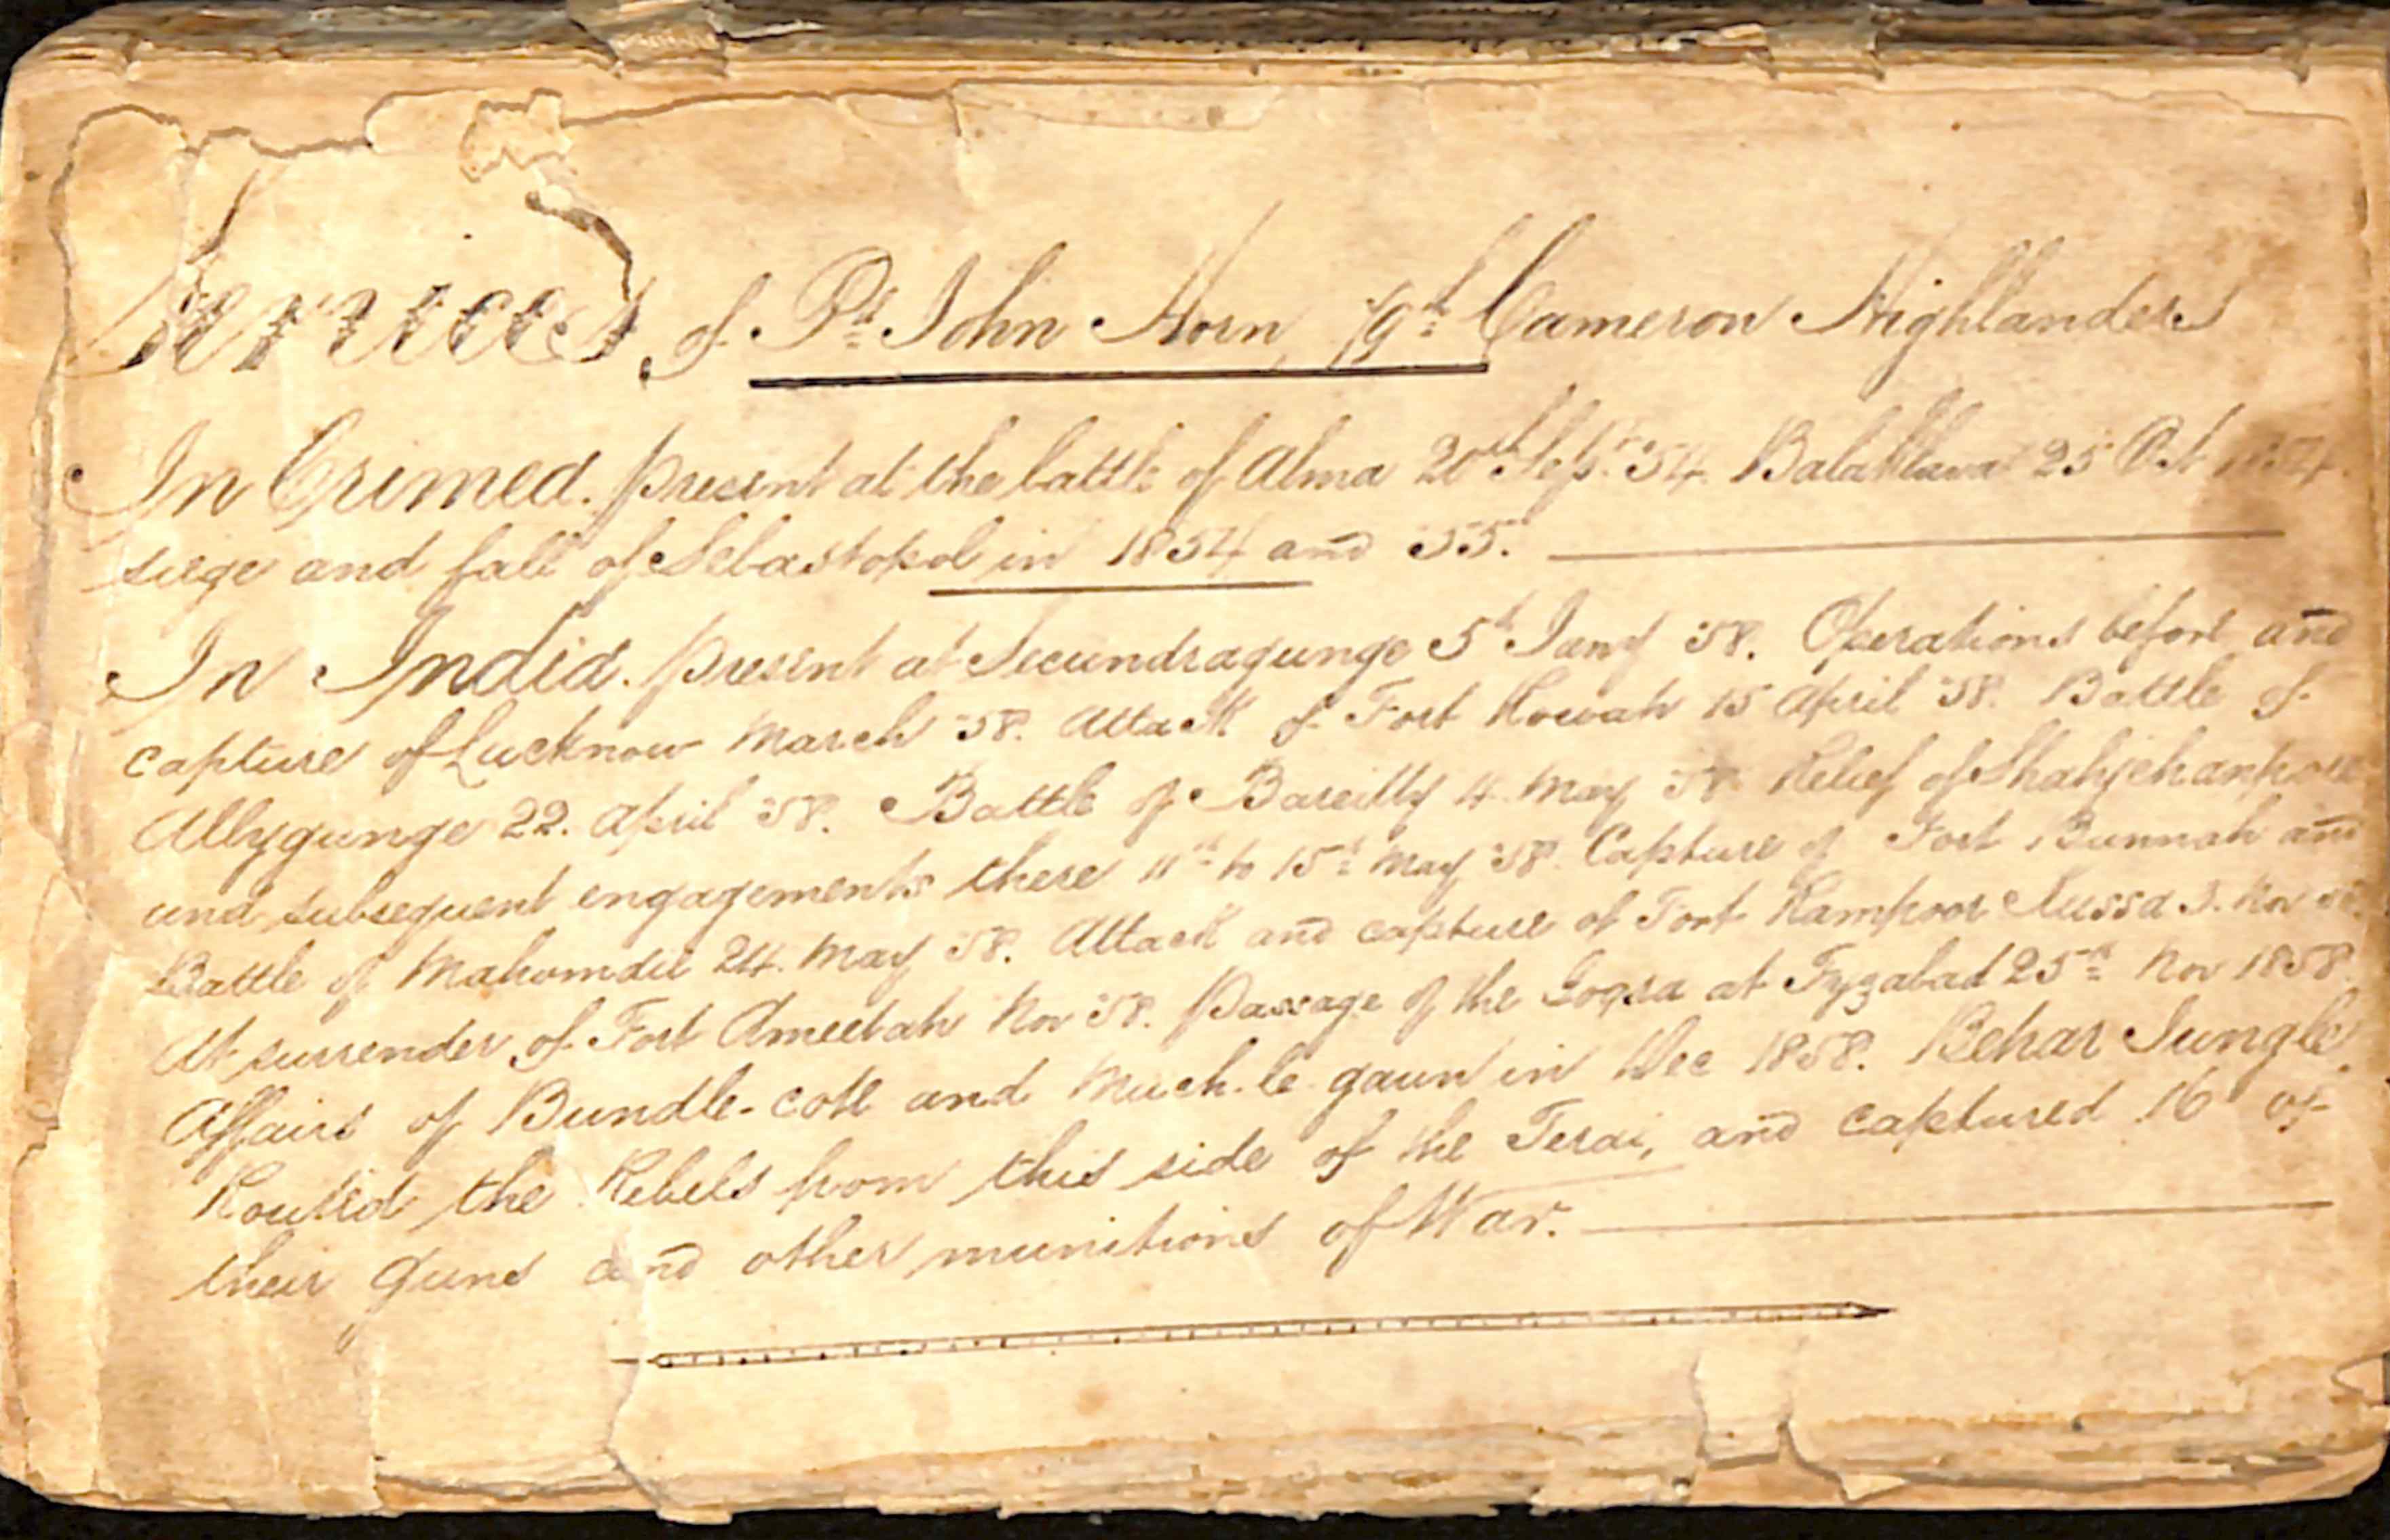 Services, of Pt. John Horn, 79th Cameron Highlanders
In Crimea. present at the battle of Alma 20th Sept. '54. Balaklava 25 Oct 1854.
siege and fall of Sebastopol in 1854 and '55.
In India. present at Secundragunge 5th Jany '58. Operations before and
capture of Lucknow March '58. Attack of Fort Rowah 15 April '58. Battle of
Allygunge 22. April '58. Battle of Bareilly 4. May '58. Relief of Shahjehanpore
and subsequent engagements there 11th to 15th May '58. Capture of Fort Bunnah and
Battle of Mahomdie 24. May '58. Attack and capture of Fort Rampoor Kussa 3. Nov '58.
At surrender of Fort Ameetah Nov '58. Passage of the Gogra at Fyzabad 25th Nov 1858.
Affairs of Bundle-cote and Much-le-gaun in Dec 1858. Behar Jungle.
Routed the Rebels from this side of the Terai, and captured 16 of
their guns and other munitions of War.